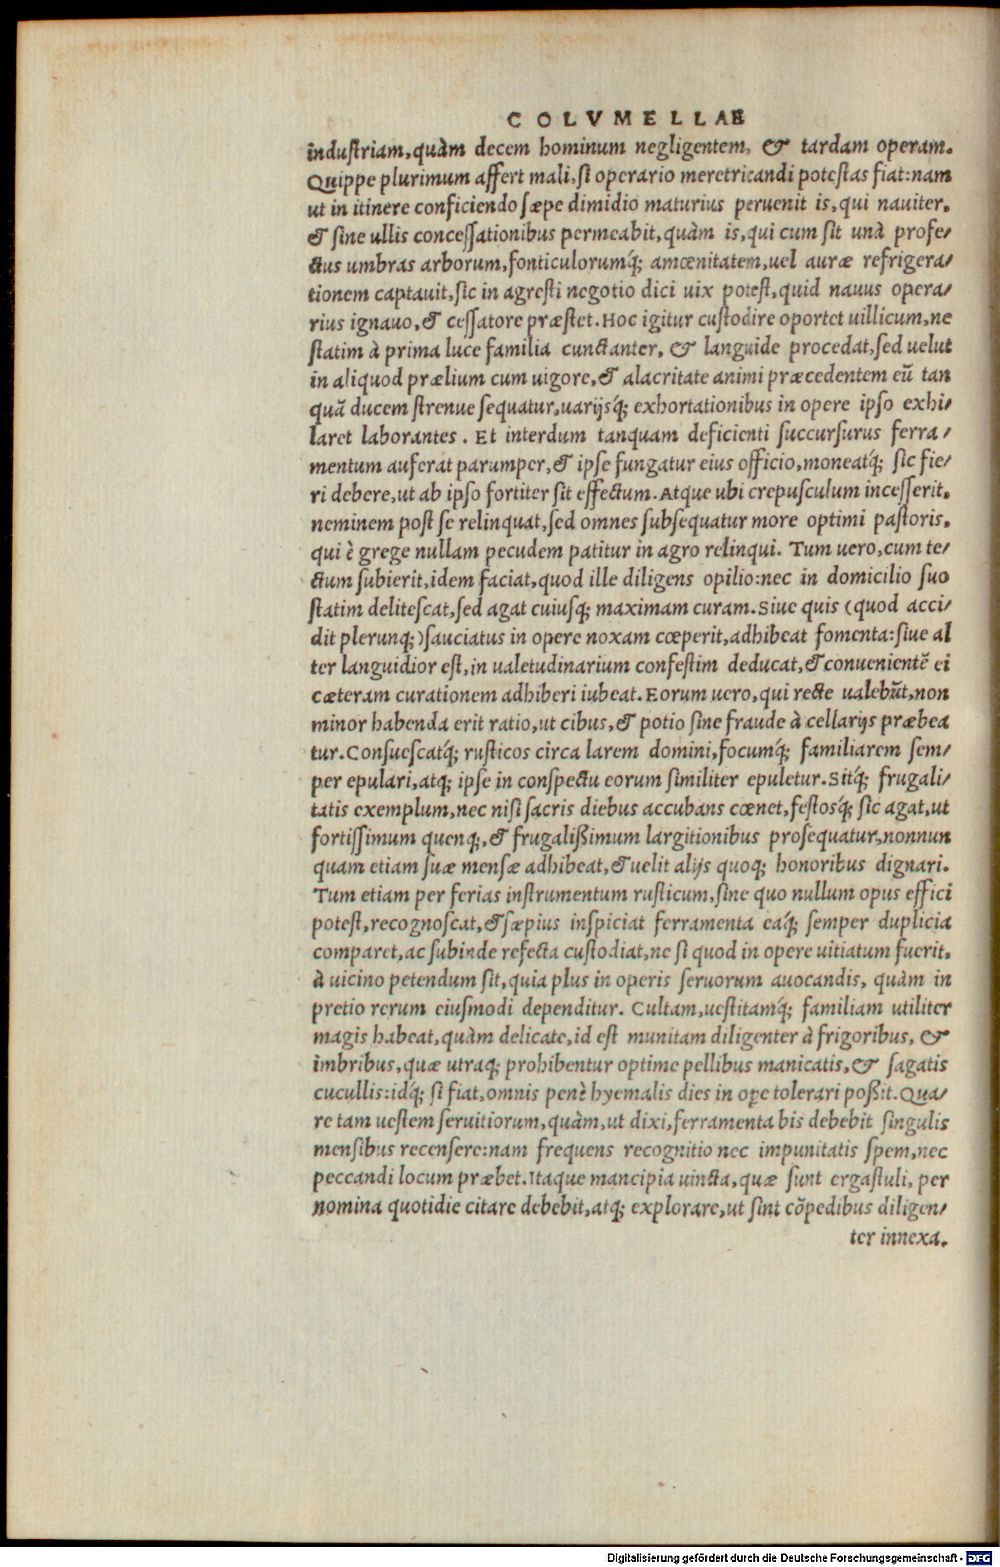 COLVMELLAE
industriam, quàm decem hominum negligentem, & tardam operam.
Quippe plurimum affert mali, si operario meretricandi potestas fiat: nam
ut in itinere conficiendo sæpe dimidio maturius peruenit is, qui nauiter,
& sine ullis concessationibus permeabit, quàm is, qui cum sit unà profe/
ctus umbras arborum, fonticulorumq́; amœnitatem, uel auræ refrigera/
tionem captauit, sic in agresti negotio dici uix potest, quid nauus opera/
rius ignauo, & cessatore præstet. Hoc igitur custodire oportet uillicum, ne
statim à prima luce familia cunctanter, & languide procedat, sed uelut
in aliquod prælium cum uigore, & alacritate animi præcedentem eũ tan
quã ducem strenue sequatur, uarijsq́; exhortationibus in opere ipso exhi/
laret laborantes. Et interdum tanquam deficienti succursurus ferra/
mentum auferat parumper, & ipse fungatur eius officio, moneatq́; sic fie/
ri debere, ut ab ipso fortiter sit effectum. Atque ubi crepusculum incesserit,
neminem post se relinquat, sed omnes subsequatur more optimi pastoris,
qui è grege nullam pecudem patitur in agro relinqui. Tum uero, cum te/
ctum subierit, idem faciat, quod ille diligens opilio: nec in domicilio suo
statim delitescat, sed agat cuiusq; maximam curam. Siue quis (quod acci/
dit plerunq;) sauciatus in opere noxam cœperit, adhibeat fomenta: siue al
ter languidior est, in ualetudinarium confestim deducat, & conuenientẽ ei
cæteram curationem adhiberi iubeat. Eorum uero, qui recte ualebũt, non
minor habenda erit ratio, ut cibus, & potio sine fraude à cellarijs præbea
tur. Consuescatq́; rusticos circa larem domini, focumq́; familiarem sem/
per epulari, atq; ipse in conspectu eorum similiter epuletur. Sitq́; frugali/
tatis exemplum, nec nisi sacris diebus accubans cœnet, festosq́; sic agat, ut
fortissimum quenq;, & frugalißimum largitionibus prosequatur, nonnun
quam etiam suæ mensæ adhibeat, & uelit alijs quoq; honoribus dignari.
Tum etiam per ferias instrumentum rusticum, sine quo nullum opus effici
potest, recognoscat, & sæpius inspiciat ferramenta eaq́; semper duplicia
comparet, ac subinde refecta custodiat, ne si quod in opere uitiatum fuerit,
à uicino petendum sit, quia plus in operis seruorum auocandis, quàm in
pretio rerum eiusmodi dependitur. Cultam, uestitamq́; familiam utiliter
magis habeat, quàm delicate, id est munitam diligenter à frigoribus, &
imbribus, quæ utraq; prohibentur optime pellibus manicatis, & sagatis
cucullis: idq́; si fiat, omnis penè hyemalis dies in oꝑe tolerari poßit. Qua/
re tam uestem seruitiorum, quàm, ut dixi, ferramenta bis debebit singulis
mensibus recensere: nam frequens recognitio nec impunitatis spem, nec
peccandi locum præbet. Itaque mancipia uincta, quæ sunt ergastuli, per
nomina quotidie citare debebit, atq; explorare, ut sint cõpedibus diligen/
ter innexa.
Digitalisierung gefördert durch die Deutsche Forschungsgemeinschaft - DFG